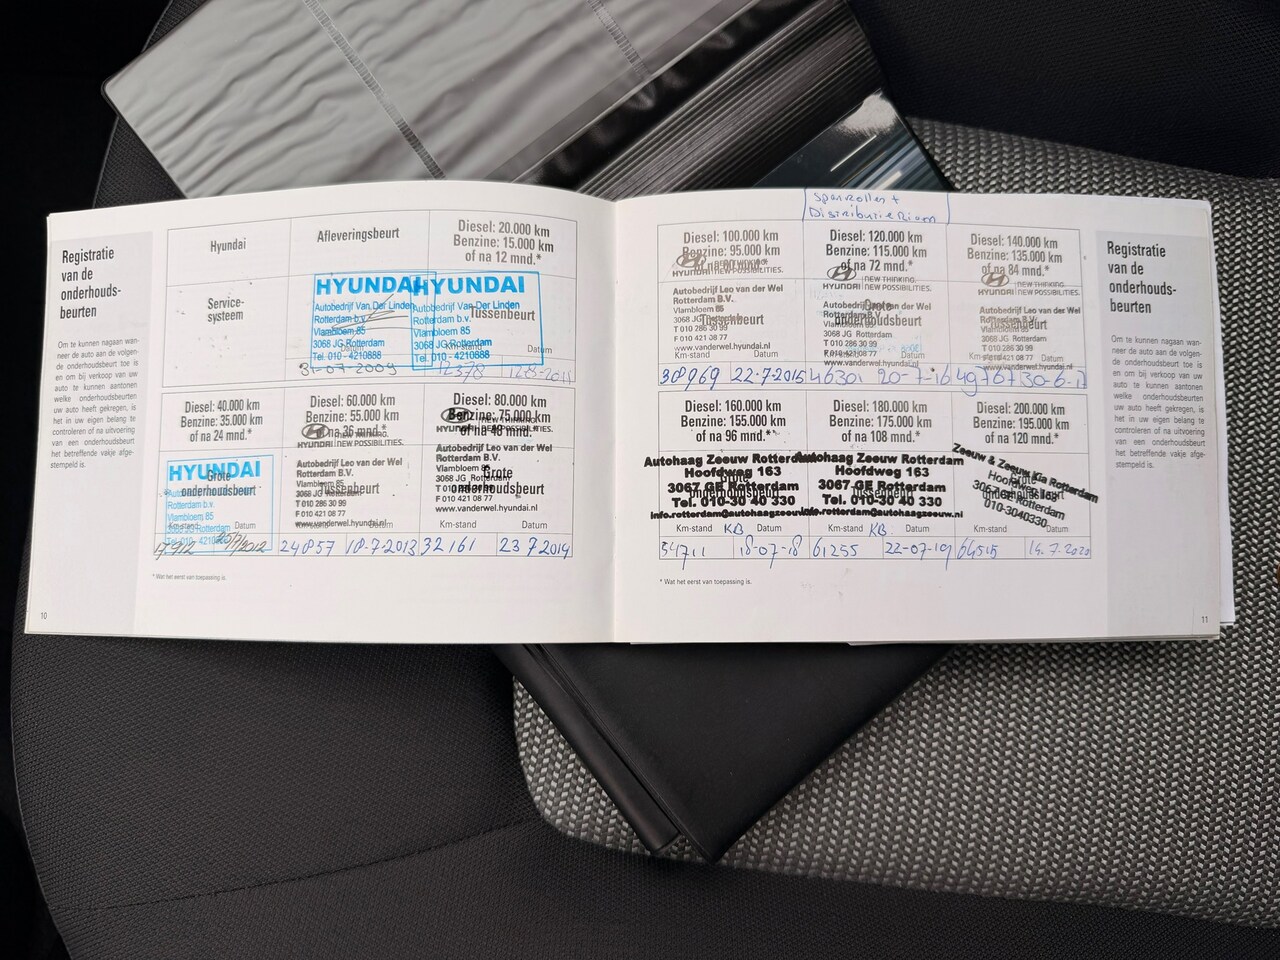 Registratie
van de
onderhouds-
beurten
Om te kunnen nagaan wan-
neer de auto aan de volgen-
de onderhoudsbeurt toe is
en om bij verkoop van uw
auto te kunnen aantonen
welke onderhoudsbeurten
uw auto heeft gekregen, is
het in uw eigen belang te
controleren of na uitvoering
van een onderhoudsbeurt
het betreffende vakje afge-
stempeld is.
10
Hyundai
Service-
systeem
Afleveringsbeurt
HYUNDAI
Autobedrijf Van Der Linden
Rotterdam b.v.
Vlambloem 85
3068 JG Rotterdam
Tel. 010 - 4210888
31-07-2009
Diesel: 20.000 km
Benzine: 15.000 km
of na 12 mnd.*
HYUNDAI
Autobedrijf Van Der Linden
Rotterdam b.v.
Tussenbeurt
Vlambloem 85
3068 JG Rotterdam
Tel. 010 - 4210888
Datum
12378
Diesel: 40.000 km
Benzine: 35.000 km
of na 24 mnd.*
HYUNDAI
Grote
onderhoudsbeurt
Rotterdam b.v.
Vlambloem 85
3068 JG Rotterdam
Km-stand Datum
17912
Diesel: 60.000 km
Benzine: 55.000 km
of na 36 mnd.*
HYUNDAI NEW THINKING. NEW POSSIBILITIES.
Autobedrijf Leo van der Wel
Rotterdam B.V.
Vlambloem 85
Tussenbeurt
3068 JG Rotterdam
T 010 286 30 99
F 010 421 08 77
www.vanderwel.hyundai.nl
24857 18-7-2013
Diesel: 80.000 km
Benzine: 75.000 km
of na 48 mnd.*
HYUNDAI NEW THINKING. NEW POSSIBILITIES.
Autobedrijf Leo van der Wel
Rotterdam B.V.
Vlambloem 85
Grote
3068 JG Rotterdam
onderhoudsbeurt
T 010 286 30 99
F 010 421 08 77
www.vanderwel.hyundai.nl
32161 23 7 2014
* Wat het eerst van toepassing is.
Spanrollen +
Distributieriem
Diesel: 100.000 km
Benzine: 95.000 km
HYUNDAI NEW POSSIBILITIES.
Autobedrijf Leo van der Wel
Rotterdam B.V.
Vlambloem 85
Tussenbeurt
3068 JG Rotterdam
T 010 286 30 99
F 010 421 08 77
www.vanderwel.hyundai.nl
Km-stand Datum
38969 22-7-2015
Diesel: 120.000 km
Benzine: 115.000 km
of na 72 mnd.*
HYUNDAI NEW THINKING. NEW POSSIBILITIES.
Grote
onderhoudsbeurt
Km-stand Datum
46301 20-7-16
Diesel: 140.000 km
Benzine: 135.000 km
of na 84 mnd.*
HYUNDAI NEW THINKING. NEW POSSIBILITIES.
Autobedrijf Leo van der Wel
Rotterdam B.V.
Tussenbeurt
3068 JG Rotterdam
T 010 286 30 99
F 010 421 08 77
www.vanderwel.hyundai.nl
49767 30-6-17
Diesel: 160.000 km
Benzine: 155.000 km
of na 96 mnd.*
Autohaag Zeeuw Rotterdam
Hoofdweg 163
Grote
3067 GE Rotterdam
onderhoudsbeurt
Tel. 010-30 40 330
info.rotterdam@autohaagzeeuw.nl
Km-stand KB Datum
54711 18-07-18
Diesel: 180.000 km
Benzine: 175.000 km
of na 108 mnd.*
Autohaag Zeeuw Rotterdam
Hoofdweg 163
3067 GE Rotterdam
Tussenbeurt
Tel. 010-30 40 330
info.rotterdam@autohaagzeeuw.nl
Km-stand KB Datum
61255 22-07-19
Diesel: 200.000 km
Benzine: 195.000 km
of na 120 mnd.*
Zeeuw & Zeeuw Kia Rotterdam
Grote
onderhoudsbeurt
010-3040330
Km-stand Datum
64515 14.7.2020
* Wat het eerst van toepassing is.
Registratie
van de
onderhouds-
beurten
Om te kunnen nagaan wan-
neer de auto aan de volgen-
de onderhoudsbeurt toe is
en om bij verkoop van uw
auto te kunnen aantonen
welke onderhoudsbeurten
uw auto heeft gekregen, is
het in uw eigen belang te
controleren of na uitvoering
van een onderhoudsbeurt
het betreffende vakje afge-
stempeld is.
11